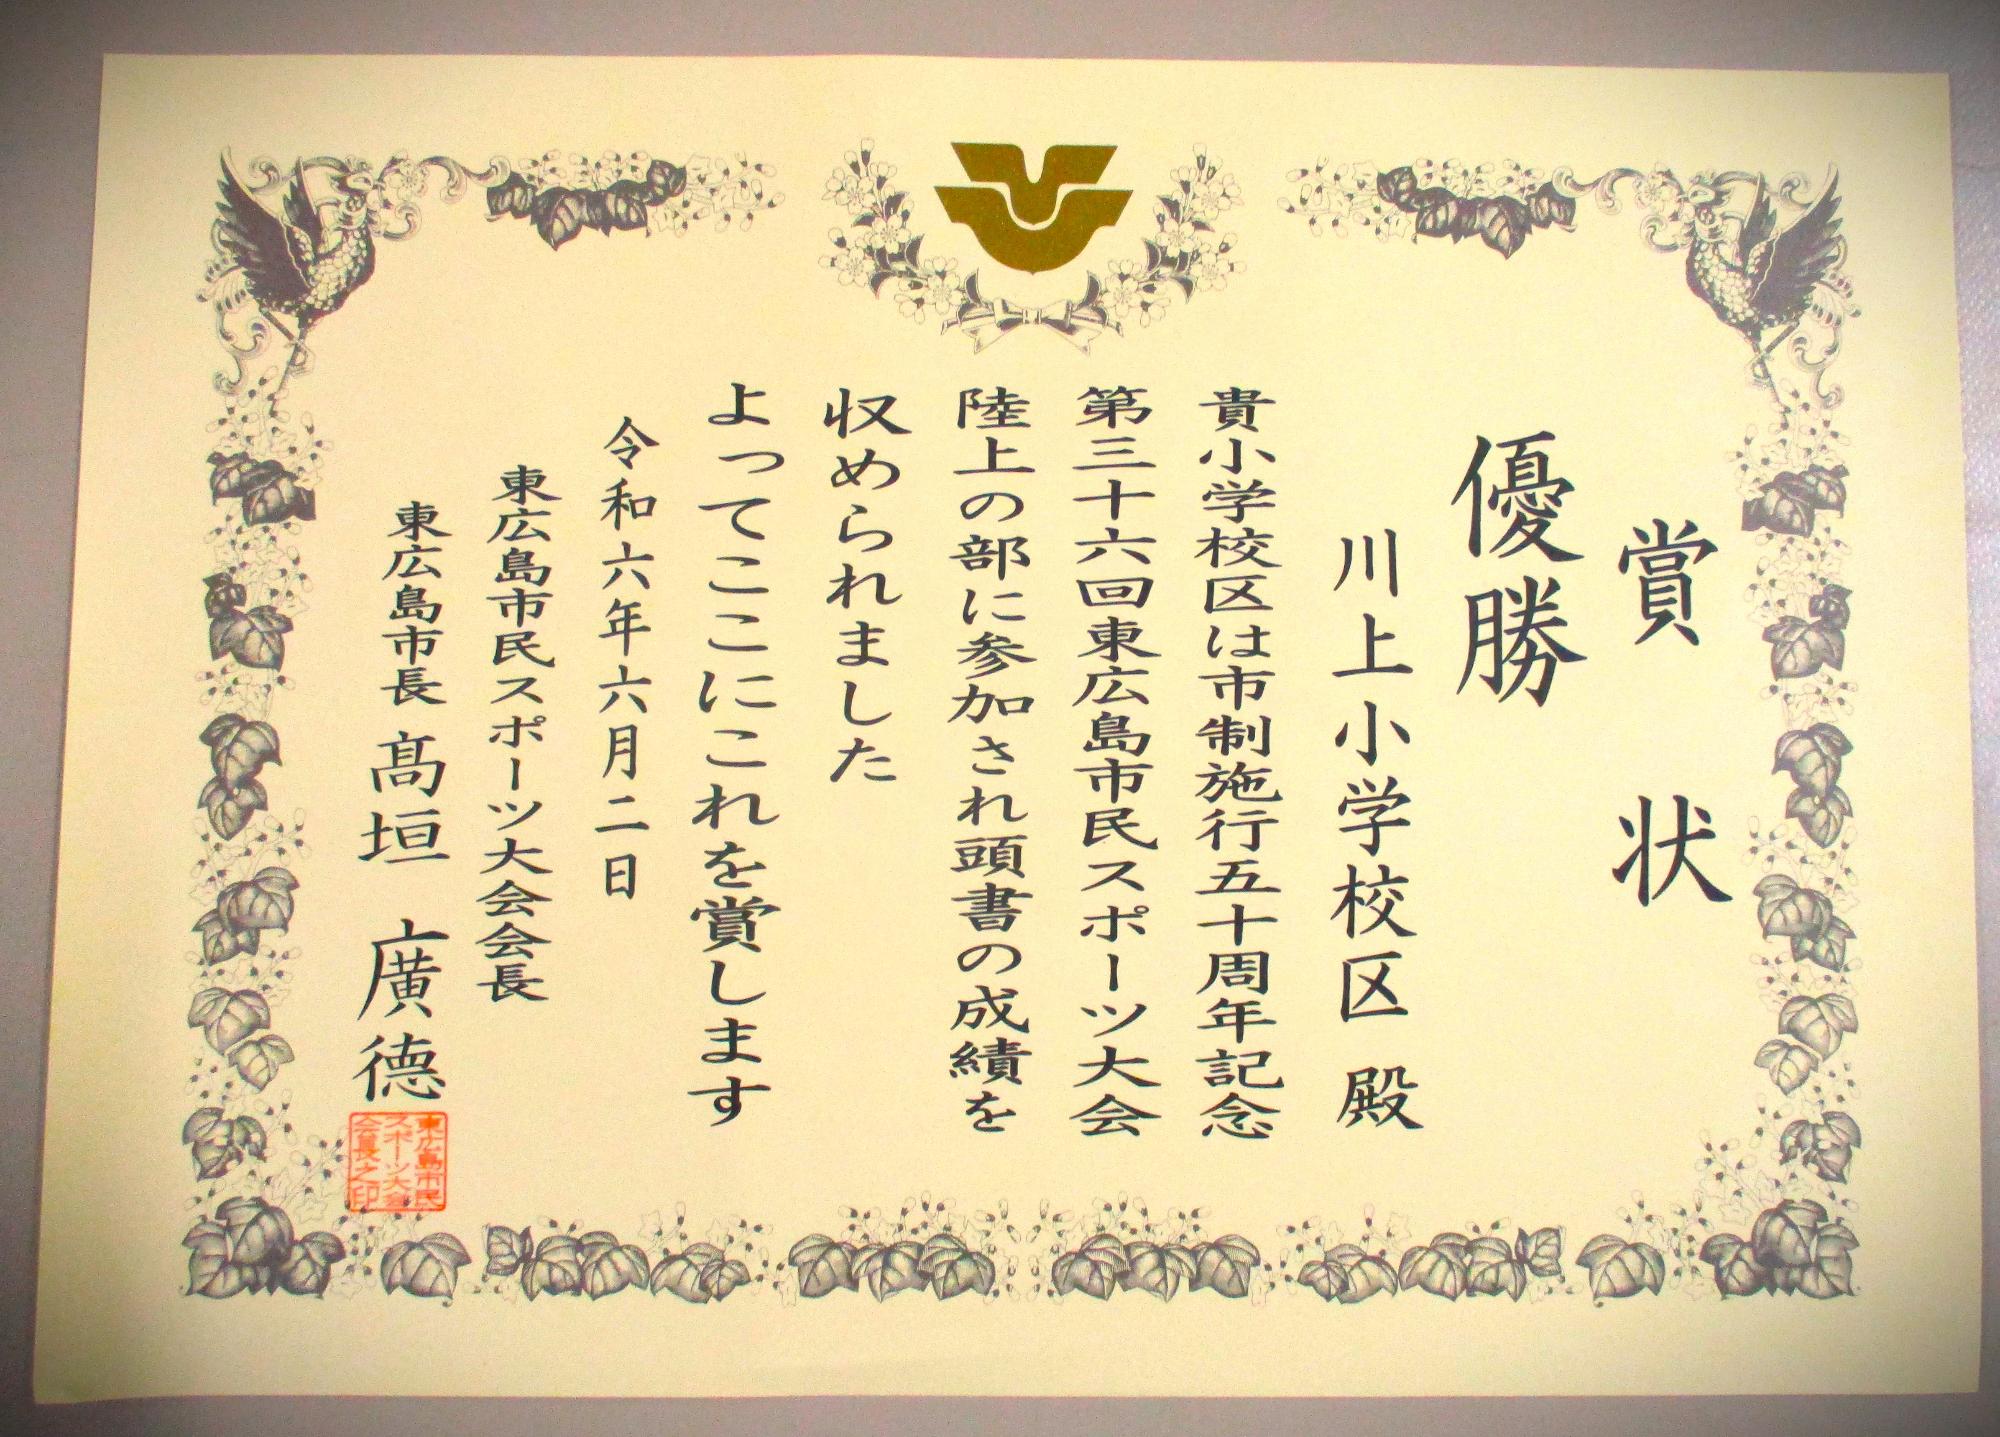 賞状
優勝
川上小学校区 殿
貴小学校区は市制施行五十周年記念
第三十六回東広島市民スポーツ大会
陸上の部に参加され頭書の成績を
収められました
よってここにこれを賞します
令和六年六月二日
東広島市民スポーツ大会会長
東広島市長 髙垣 廣德
東広島市民
スポーツ大会
会長之印